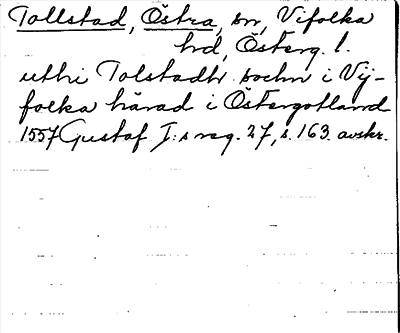 Tollstad, Östra, sn, Vifolka
hd, Österg. l.
uthi Tolstadhr sochn i Vij-
folka härad i Östergotland
1557 Gustaf I:s reg. 27, s. 163. avskr.